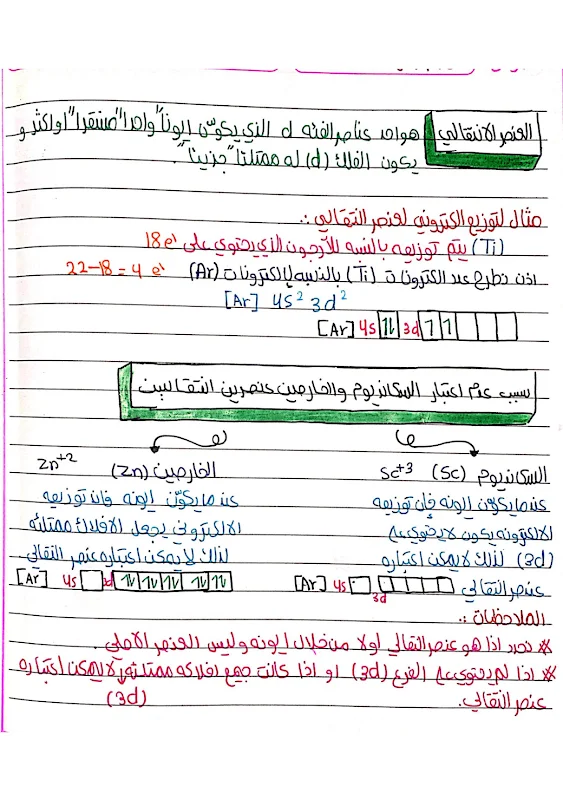 العنصر الانتقالي هو احد عناصر الفئه d الذي يكوّن ايوناً واحداً مستقراً او اكثر و
يكون الفلك (d) له ممتلئاً "جزيئاً".
مثال لتوزيع الكتروني لعنصر انتقالي :.
(Ti) يتم توزيعه بالنسبه للأرجون الذي يحتوي على 18e⁻
اذن نطرح عدد الكترونات (Ti) بالنسبه لإلكترونات (Ar) 22-18 = 4 e⁻
[Ar] 4s² 3d²
[Ar] 4s 3d
سبب عدم اعتبار السكانديوم والخارصين عنصرين انتقاليين
السكانديوم (Sc) Sc⁺³
عندما يكوّن ايونه فإن توزيعه
الالكترونه يكون لا يحتوي على
(3d) لذلك لا يمكن اعتباره
عنصر انتقالي
[Ar] 4s 3d
الخارصين (Zn) Zn⁺²
عندما يكوّن ايونه فان توزيعه
الالكتروني يجعل الافلاك ممتلئه
لذلك لا يمكن اعتباره عنصر انتقالي
[Ar] 4s 3d
الملاحظات :.
* نحدد اذا هو عنصر انتقالي اولا من خلال ايونه وليس العنصر الاصلي.
* اذا لم يحتوي على الفرع (3d) او اذا كانت جميع افلاكه ممتلئه لا يمكن اعتباره
عنصر انتقالي. (3d)